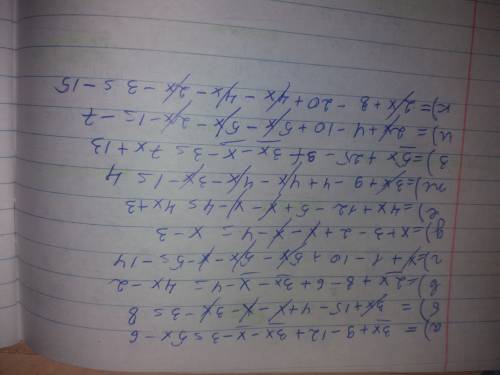 а) = 3x + 9 - 12 + 3x - x - 3 = 5x - 6
б) = 3x + 15 - 4 + x - x - 3x - 3 = 8
в) = 2x + 8 - 6 + 3x - x - 4 = 4x - 2
г) = x + 1 - 10 + 5x - 5x - x - 5 = -14
д) = x + 3 - 2 + x - x - 4 = x - 3
е) = 4x + 12 - 5 + x - x - 4 = 4x + 3
ж) = 3x + 9 - 4 + 4x - 4x - 3x - 1 = 4
з) = 5x + 25 - 9 + 3x - x - 3 = 7x + 13
и) = 2x + 4 - 10 + 5x - 5x - 2x - 1 = -7
к) = 2x + 8 - 20 + 4x - 4x - 2x - 3 = -15